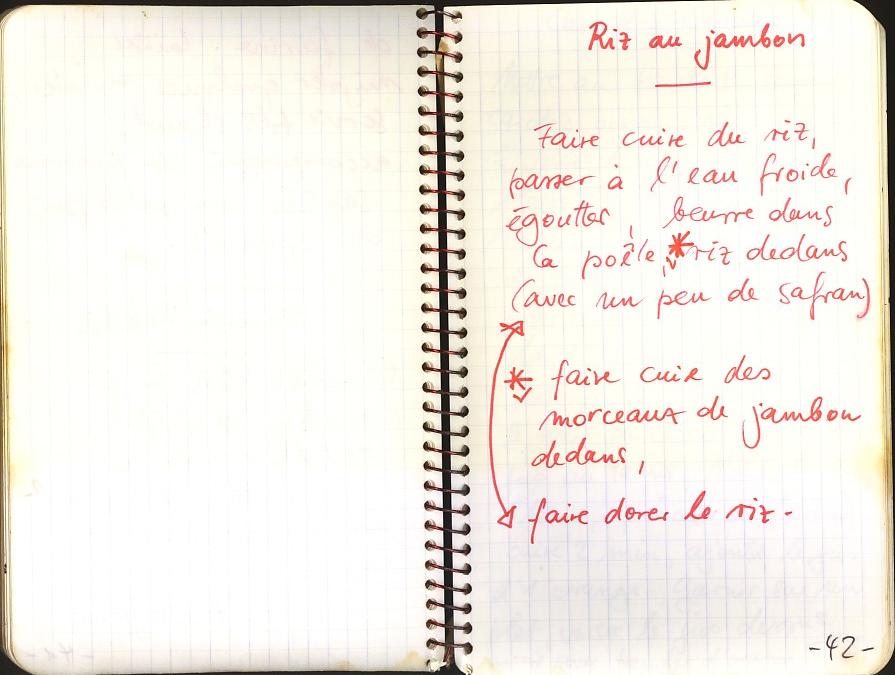 Riz au jambon
Faire cuire du riz,
passer à l'eau froide,
égoutter, beurre dans
la poêle, * riz dedans
(avec un peu de safran)
* faire cuire des
morceaux de jambon
dedans,
faire dorer le riz.
-42-